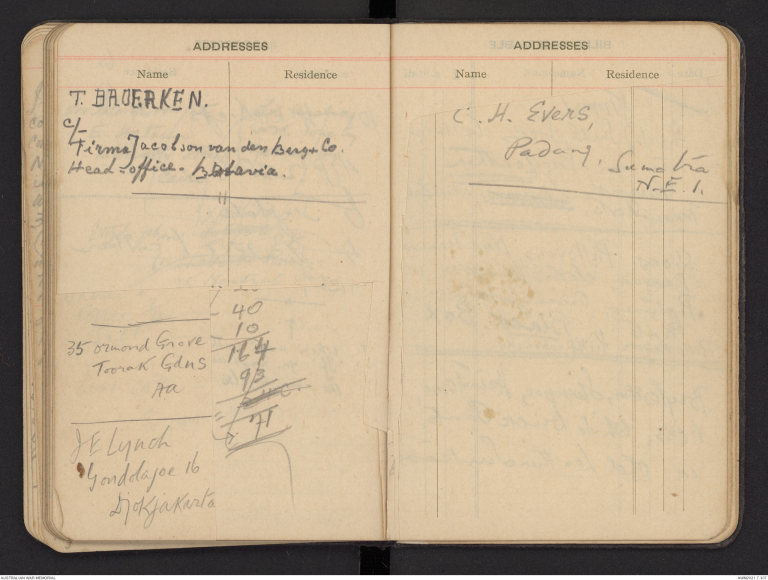 ADDRESSES
Name Residence
T. BROERKEN.
c/-
Firma Jacobson van den Berg & Co.
Head-office. Batavia.
35 Ormond Grove
Toorak Gdns
AA
J E Lynch
Gondolajoe 16
Djokjakarta
40
10
164
93
71
ADDRESSES
Name Residence
C. H. Evers,
Padang, Sumatra
N.E.I.
AUSTRALIAN WAR MEMORIAL